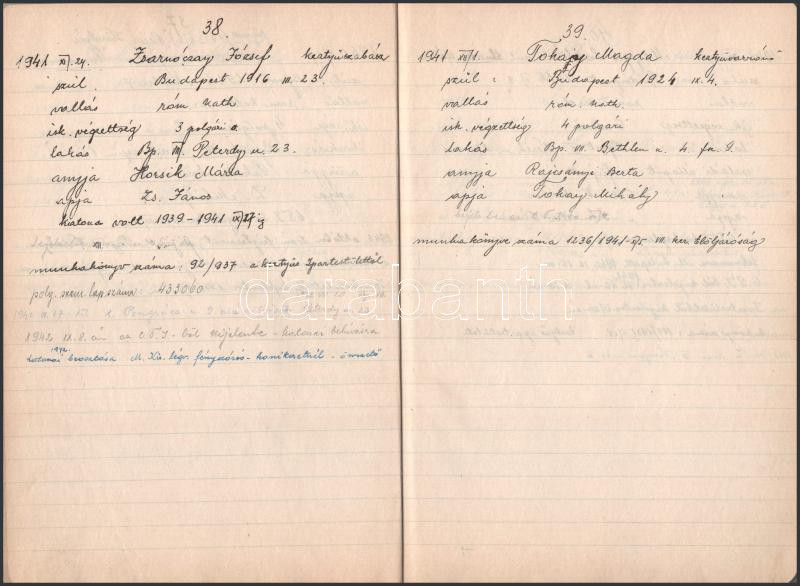 38.
1941 XI. 24. Zsarnóczay József kesztyűszabász
szül. Budapest 1916 III. 23.
vallás róm. kath.
isk. végzettség 3 polgári o.
lakás Bp. Peterdy u. 23.
anyja Horsik Mária
apja Zs. János
katona volt 1939-1941 ig
munkakönyv száma: 92/937 a kesztyűs Ipartestülettől
polg. szem. lap száma: 433060
1942 IX. 8. án az O.T.I.-ből kijelentve - katonai behívásra
1942 katonai beosztása M. Kir. légv. fényszóró
39.
1941 XII. 1. Tokay Magda kesztyűvarrónő
szül: Budapest 1924 IX. 4.
vallás róm. kath.
isk. végzettség 4 polgári
lakás Bp. Bethlen u. 4. fn. 9.
anyja Rajcsányi Berta
apja Tokay Mihály
munkakönyv száma 1236/1941 ker. Elöljáróság
carabanth